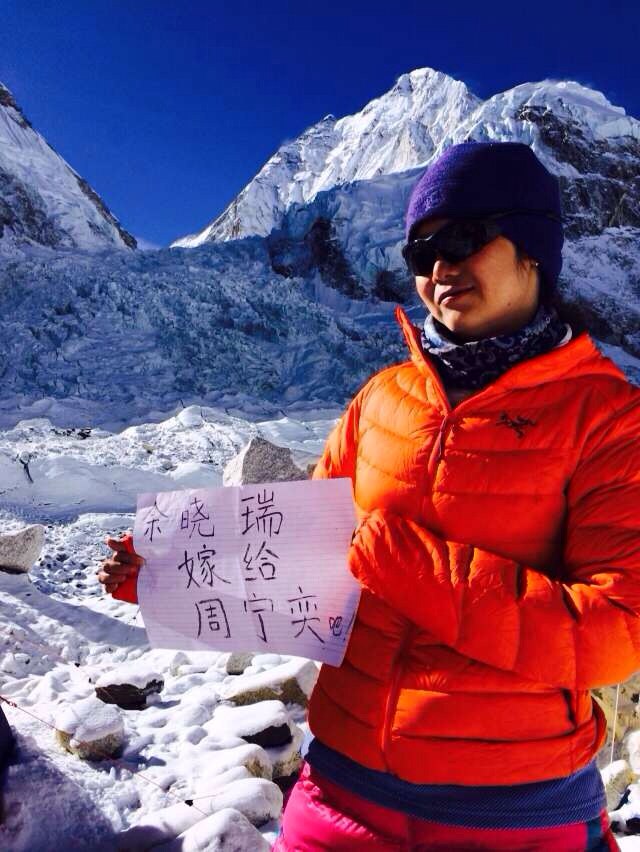 余晓瑞
嫁给
周宁奕吧!